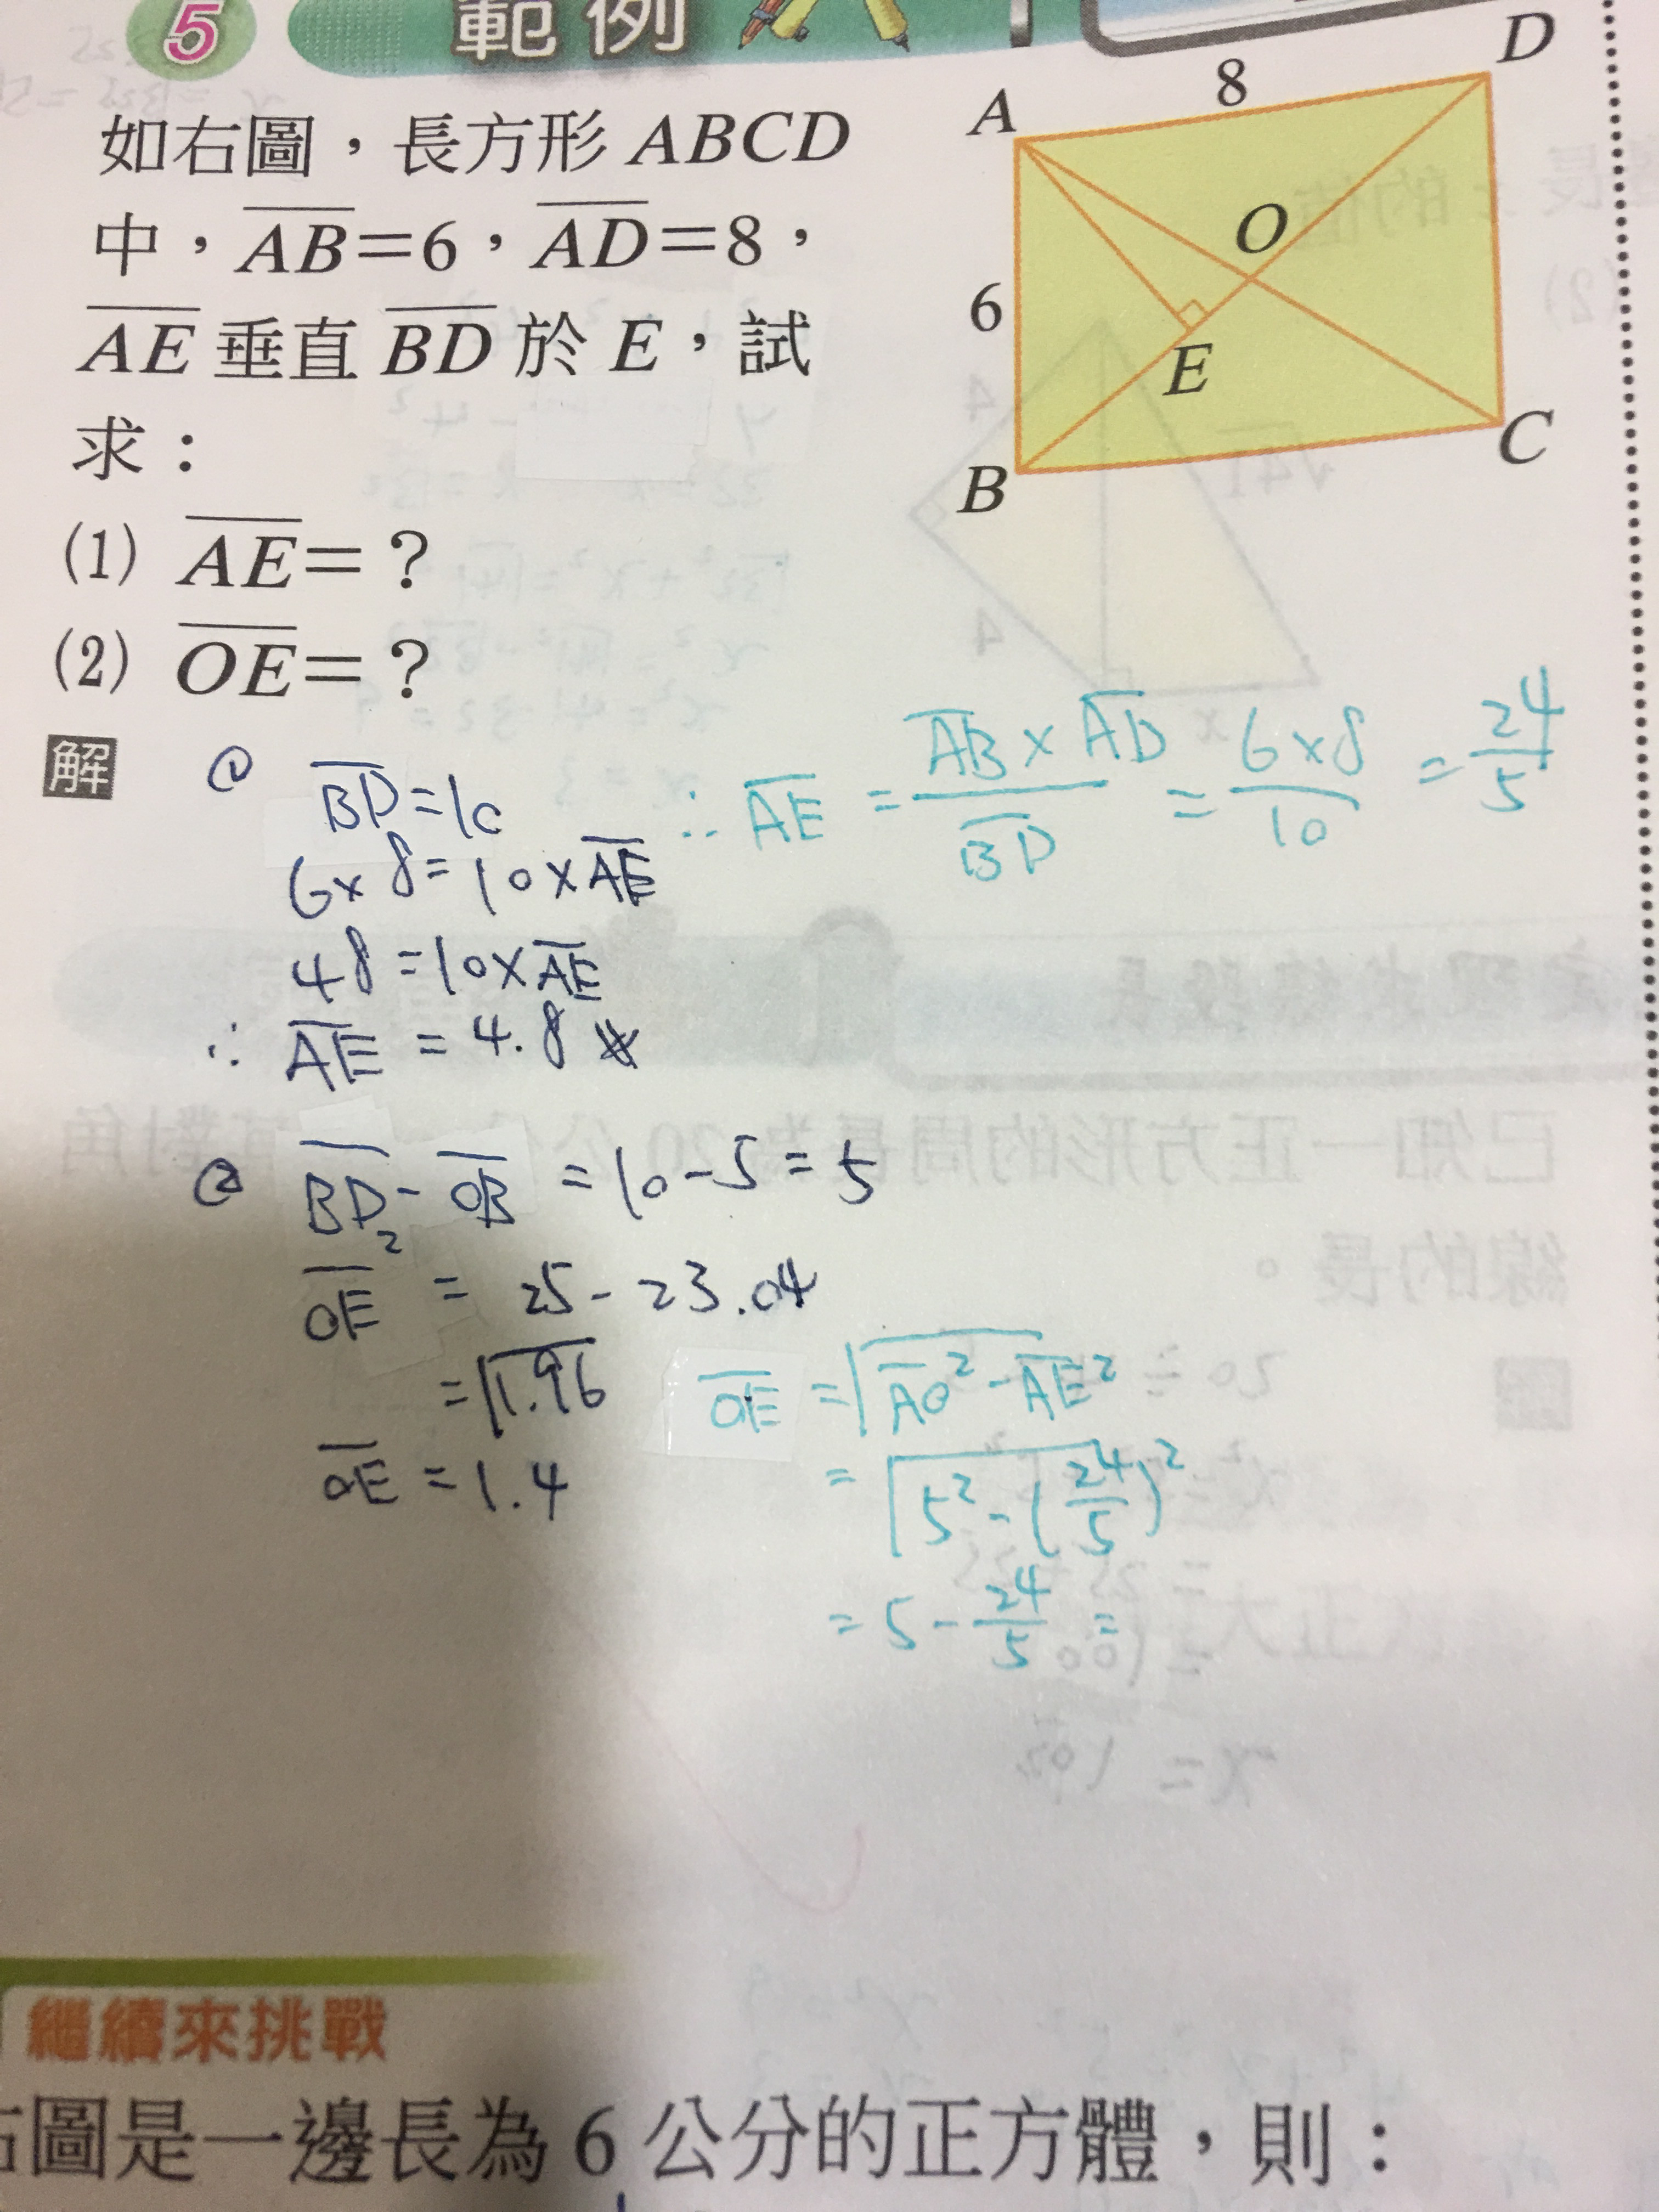 5 範例
如右圖，長方形 ABCD
中，AB=6，AD=8，
AE 垂直 BD 於 E，試
求：
(1) AE=？
(2) OE=？
A
8
D
O
6
E
B
C
解
① BD=10
6×8=10×AE
48=10×AE
∴ AE = 4.8
∴ AE = AB×AD/BD = 6×8/10 = 24/5
② BD - OB = 10-5=5
OE² = 25-23.04
=√1.96
OE = 1.4
OE =√AO²-AE²
= √5²-(24/5)²
= 5-24/5 =
繼續來挑戰
右圖是一邊長為 6 公分的正方體，則：